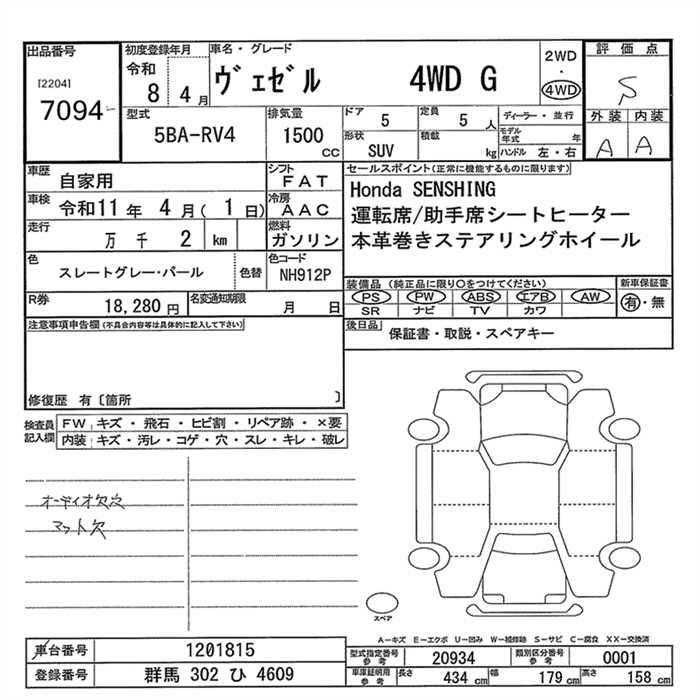 出品番号
[2204]
7094
初度登録年月
令和
8 4 月
車名・グレード
ヴェゼル 4WD G
2WD
・
4WD
評価点
S
外装 内装
A A
型式
5BA-RV4
排気量
1500
CC
ドア
5
定員
5 人
形状
SUV
積載
kg
ディーラー・並行
モデル年式 年
ハンドル 左・右
車歴
自家用
シフト
FAT
車検
令和11年 4月( 1日)
冷房
AAC
走行
万 千 2 km
燃料
ガソリン
色
スレートグレー・パール
色替
色コード
NH912P
R券
18,280 円
名変通知期限
月 日
セールスポイント(正常に機能するものに限ります)
Honda SENSHING
運転席/助手席シートヒーター
本革巻きステアリングホイール
装備品 (純正品に限り○をつけてください)
PS PW ABS エアB AW
SR ナビ TV カワ
新車保証書
有・無
後日品
保証書・取説・スペアキー
注意事項申告欄(不具合内容等は具体的に記入して下さい)
修復歴 有〔箇所 〕
検査員
記入欄
FW キズ・飛石・ヒビ割・リペア跡・×要
内装 キズ・汚レ・コゲ・穴・スレ・キレ・破レ
オーディオ欠欠
マット欠
スペア
A−キズ E−エクボ U−凹み W−補修跡 S−サビ C−腐食 XX−交換済
車台番号
1201815
登録番号
群馬 302 ひ 4609
型式指定番号
参考
20934
類別区分番号
参考
0001
車庫証明用
参考
長さ
434 cm
幅
179 cm
高さ
158 cm